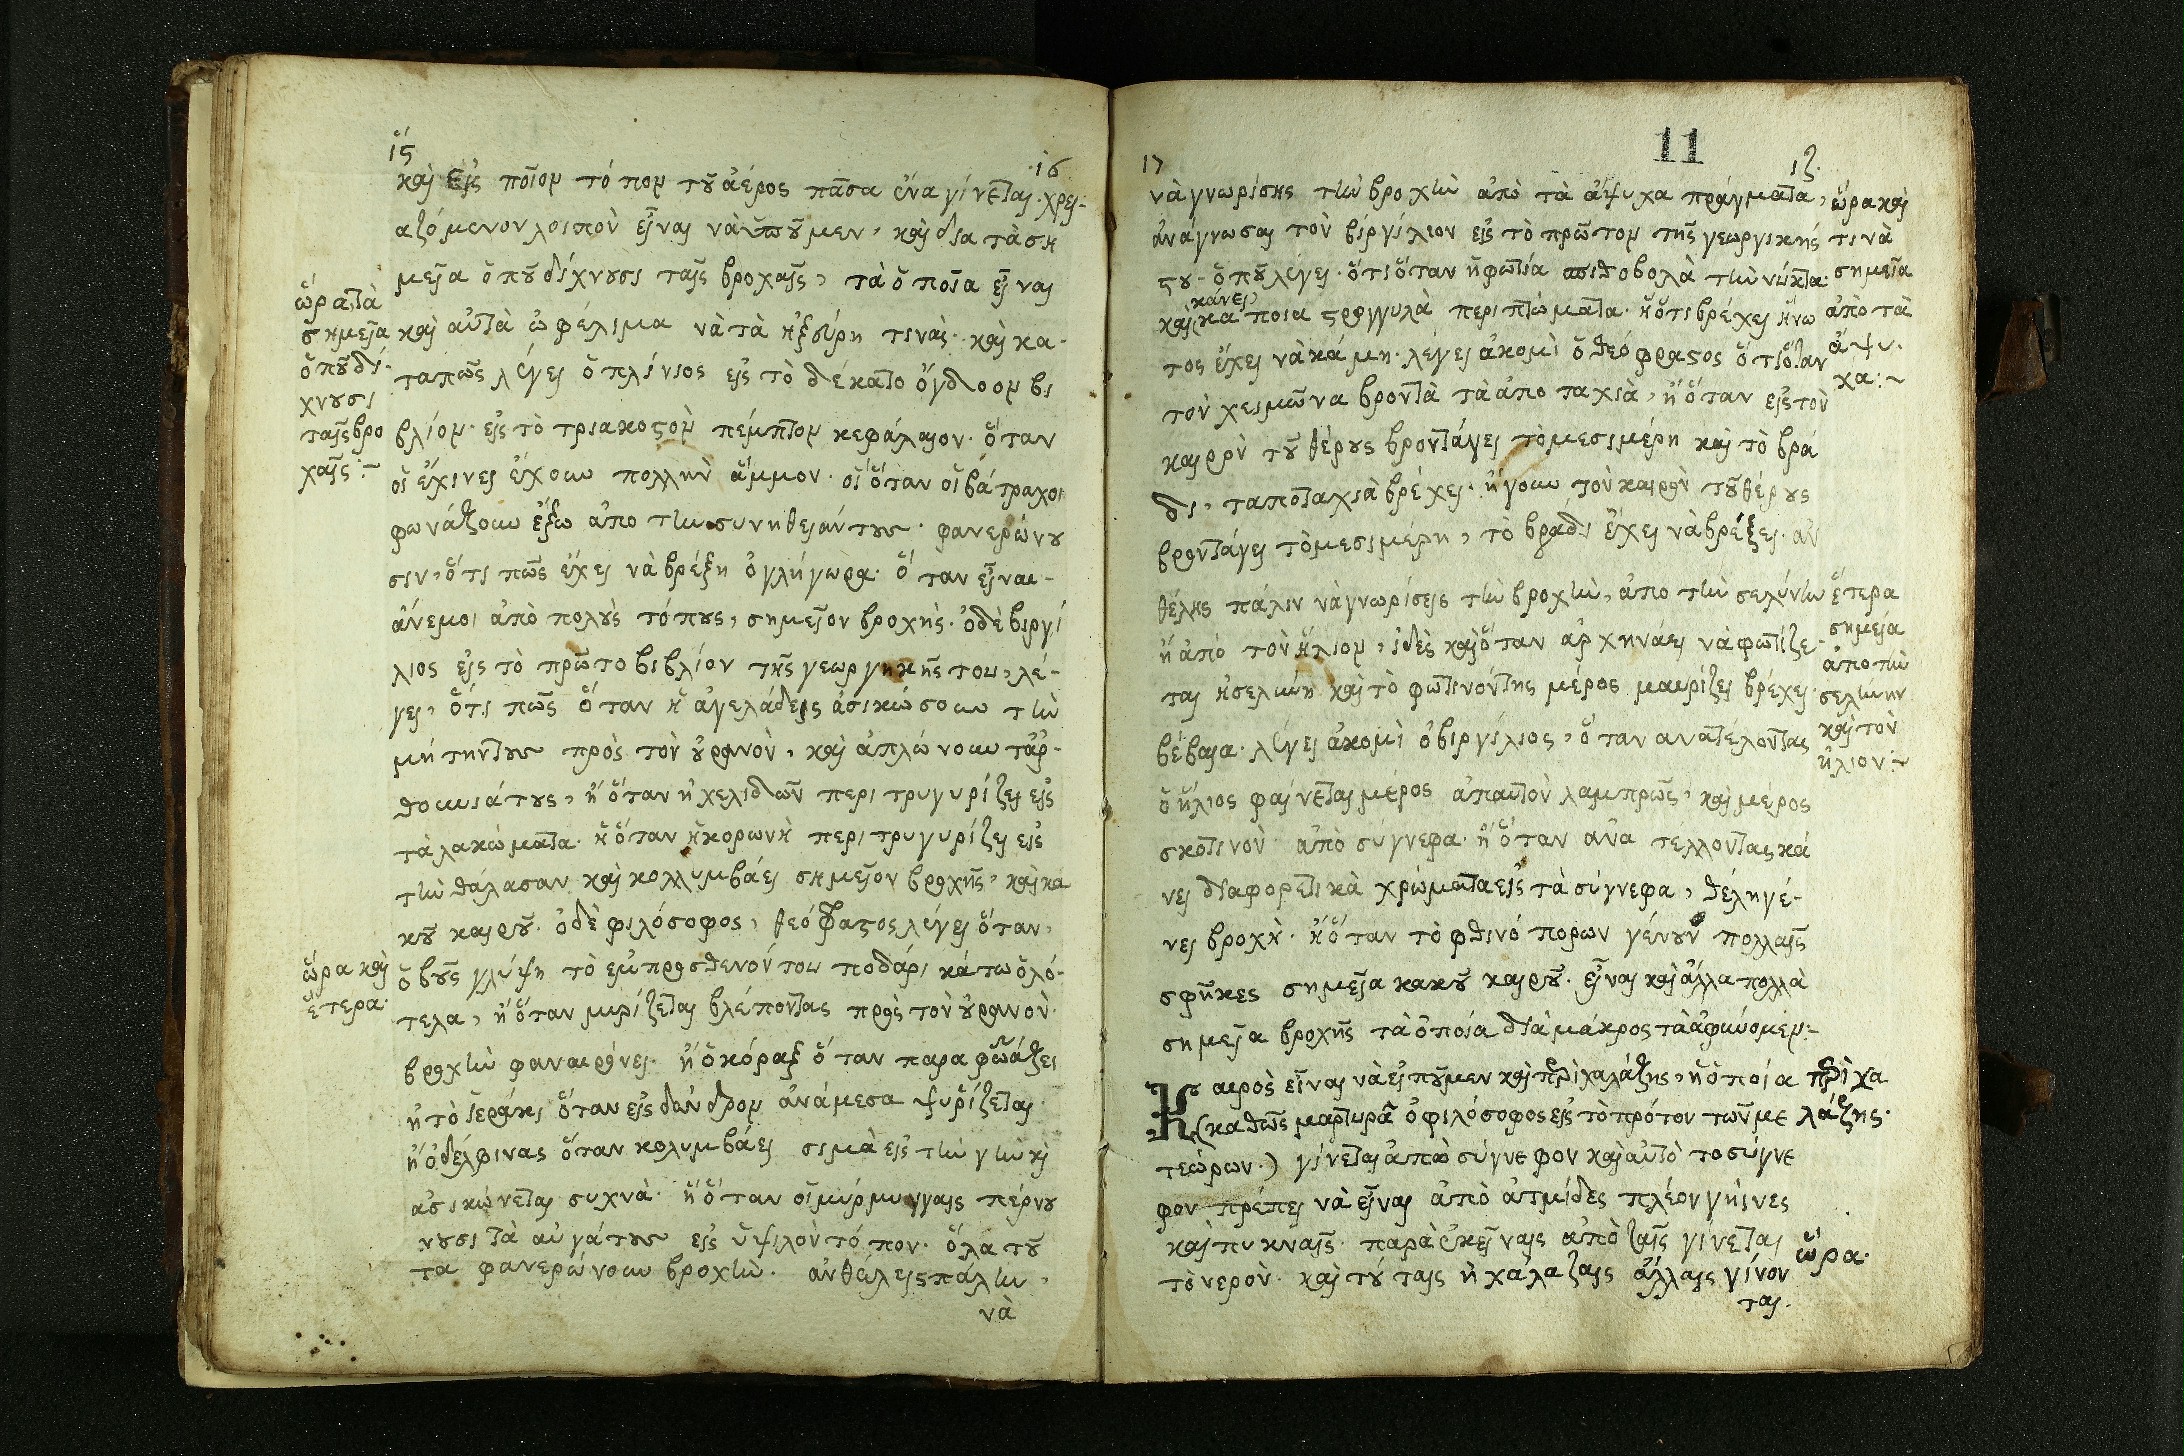 ις
16
καὶ εἰς ποῖον τόπον τοῦ ἀέρος πᾶσα ἕνα γίνεται. χρει-
αζόμενον λοιπὸν εἶναι νὰ ποῦμεν, καὶ δια τὰ ση
μεῖα ὁποῦ δίχνουσι ταῖς βροχαῖς, τὰ ὁποῖα εἶναι
καὶ αὐτὰ ὠφέλιμα νὰ τὰ ἠξεύρη τινάς. καὶ κα-
ταπῶς λέγει ὁ πλίνιος εἰς τὸ δέκατο ὄγδοον βι
βλίον. εἰς τὸ τριακοστὸν πέμπτον κεφάλαιον. ὅταν
οἱ ἔχινει ἔχουν πολλὴν ἄμμον. οἱ ὅταν οἱ βάτραχοι
φωνάζουν ἔξω ἀπο την συνηθειάν τους. φανερώνου
σιν, ὅτι πῶς ἔχει νὰ βρέξη ὀγλήγωρα. ὅταν εἶναι
ἄνεμοι ἀπὸ πολοὺς τόπους, σημεῖον βροχῆς. ὁ δὲ βιργί
λιος εἰς τὸ πρῶτο βιβλίον τῆς γεωργηκῆς του, λέ-
γει, ὅτι πῶς ὅταν ἡ ἀγελάδεις ἀσικώσουν τὴν
μήτην τους πρὸς τὸν οὐρανὸν, καὶ ἁπλώνουν τ' ἀρ-
θουνιάτους, ἢ ὅταν ἡ χελιδῶν περιτρυγυρίζει εἰς
τὰ λακώματα. ἢ ὅταν ἡ κορωνὴ περιτρυγυρίζει εἰς
τὴν θάλασαν καὶ κολλυμβάει σημεῖον βροχῆς, καὶ κα
κοῦ καιροῦ. ὁ δὲ φιλόσοφος, θεόφραστος λέγει ὅταν,
ὁ βοῦς γλύψη τὸ εμπροσθενόν του ποδάρι κάτω ὁλό-
τελα, ἢ ὅταν μυρίζεται βλέποντας πρὸς τὸν οὐρανὸν.
βροχὴν φαναιρώνει. ἢ ὁ κόραξ ὅταν παραφωνάζει
ἢ τὸ ἱεράκι ὅταν εἰς δένδρον ἀνάμεσα ψυρίζεται
ἢ ὁ δέλφινας ὅταν κολυμβάει σιμὰ εἰς τὴν γὴν κὶ
ασικώνεται συχνὰ. ἢ ὅταν οἱ μύρμυγγαις πέρνου
νουσι τὰ αὐγάτους εἰς ὑψιλὸν τόπον. ὅλα τοῦ
τα φανερώνουν βροχὴν. ἀν θωλεις πάλιν,
νὰ
ὥρα τὰ
σημεῖα
ὁποῦ δί-
χνουσι
ταῖς βρο
χαῖς:~
ὥρα καὶ
ἕτερα.
17
11
ιζ.
νὰ γνωρίσης τὴν βροχὴν ἀπὸ τὰ ἄψυχα πράγματα,
ἀνάγνωσαι τὸν βιργίλιον εἰς τὸ πρῶτον τῆς γεωργικῆς
του. ὁποῦ λέγει. ὅτι ὅταν ἡ φωτία σπιθοβολὰ τὴν νύκτα.
κάνει
καὶ κάποια στρογγυλὰ περιπτώματα. ἢ ὅτι βρέχει ἢ νω
τος ἔχει νὰ κάμη. λέγει ἀκομὶ ὁ θεόφραστος ὅτι ὅταν
τὸν χειμῶνα βροντὰ τὰ ἀπο ταχιὰ, ἢ ὅταν εἰς τὸν
καιρὸν τοῦ θέρους βροντάγει τὸ μεσιμέρη καὶ τὸ βρά
δι, ταποταχιὰ βρέχει. ἤγουν τὸν καιρὸν τοῦ θέρους
βροντάγει τὸ μεσιμέρη, τὸ βράδι ἔχει νὰ βρέξει. ἀν
θέλης πάλιν νὰ γνωρίσεις τὴν βροχὴν, ἀπο τὴν σελήνην
ἢ ἀπό τὸν ἥλιον, ἰδὲς καὶ ὅταν ἀρχηνάει νὰ φωτίζε-
ται ἡ σελήνη καὶ τὸ φωτεινόν της μέρος μαυρίζει βρέχει
βέβαια. λέγει ἀκομὶ ὁ βιργίλιος, ὅταν ανατέλοντας
ὁ ἥλιος φαίνεται μέρος ἀπαυτὸν λαμπρῶς, καὶ μέρος
σκοτινὸν ἀπὸ σύγνεφα. ἢ ὅταν ἀνατέλλοντας κά
νει διαφορετικὰ χρώματα εἰς τὰ σύγνεφα, θέλη γέ-
νει βροχὴ. ἢ ὅταν τὸ φθινόπορων γένουν πολλαῖς
σφῆκες σημεῖα κακοῦ καιροῦ. εἶναι καὶ ἄλλα πολλὰ
σημεῖα βροχῆς τὰ ὁποία διὰ μάκρος τὰ ἀφίνομεν:-
Καιρὸς εἶναι νὰ εἰποῦμεν καὶ περὶ χαλάζης, ἡ ὁποία
(καθῶς μαρτυρᾶ ὁ φιλόσοφος εἰς τὸ πρότον τῶν με
τεώρων.) γίνεται ἀπὸ σύγνεφον καὶ αὐτὸ το σύγνε
φον πρέπει νὰ εἶναι ἀπὸ ἀτμίδες πλέον γήινες
καὶ πυκναῖς. παρὰ ἐκεῖναις ἀπὸ ταῖς γίνεται
τὸ νερὸν. καὶ τούταις ἡ χάλαζαις ἄλλαις γίνον
ται.
ὥρα καὶ
τινὰ
σημεῖα
ἀπὸ τὰ
ἄψυ-
χα:~
ἕτερα
σημεία
ἀπο τὴν
σελήνην
καὶ τὸν
ἥλιον:~
περὶ χα
λάζης.
ὥρα.